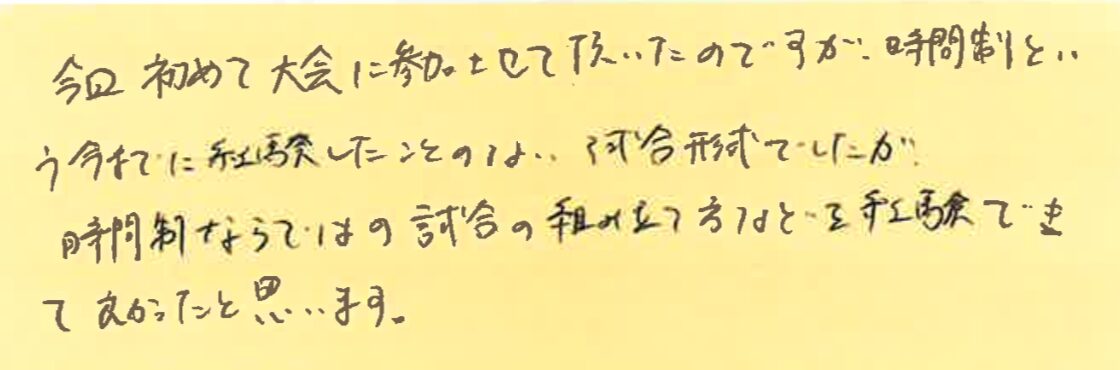 今回初めて大会に参加させて頂いたのですが、時間制とい
う今までに経験したことのない試合形式でしたが、
時間制ならではの試合の組み立て方などを経験でき
て良かったと思います。